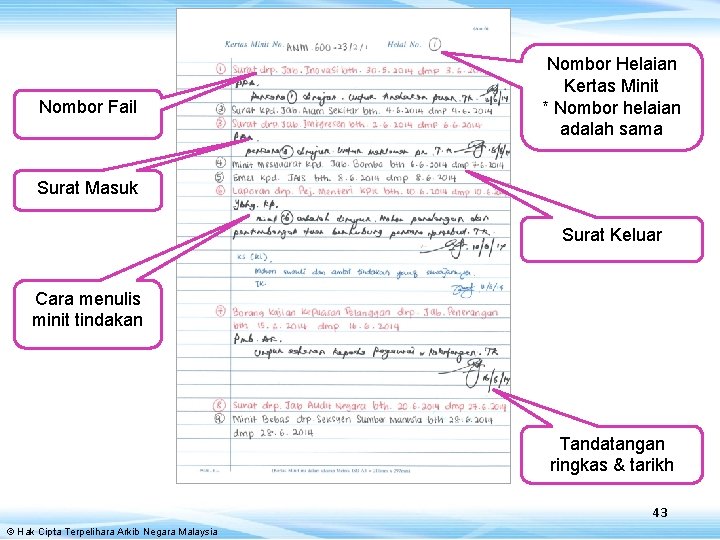 Kertas Minit No. ANM.600-23/2/1 Helai No. 1
① Surat drp. Jab. Inovasi bth. 30.5.2014 dmp 3.6.2014
② Surat kpd. Jab. Alam Sekitar bth. 4.6.2014 dmp 4.6.2014
③ Surat drp. Jab. Imigresen bth. 2.6.2014 dmp 6.6.2014
④ Minit Mesyuarat kpd. Jab. Bomba bth 6.6.2014 dmp 7.6.2014
⑤ Emel kpd. JAIS bth 8.6.2014 dmp 8.6.2014
⑥ Laporan drp. Pej. Menteri KPK bth. 10.6.2014 dmp 10.6.2014
Ybhg. KP.
minit ⑥ adalah dirujuk. Mohon pandangan dan
pertimbangan tuan berhubung
10/6/14
KS (KL)
Mohon susuli dan ambil tindakan yang sewajarnya.
TK.
⑦ Borang Kajian Kepuasan Pelanggan drp. Jab. Penerangan
bth 15.6.2014 dmp 16.6.2014
Untuk edaran kepada pegawai & kakitangan. TK
16/6/14
⑧ Surat drp. Jab Audit Negara bth. 20.6.2014 dmp 27.6.2014
⑨ Minit Bebas drp. Seksyen Sumber Manusia bth 28.6.2014
dmp 28.6.2014
Nombor Fail
Surat Masuk
Cara menulis
minit tindakan
Nombor Helaian
Kertas Minit
* Nombor helaian
adalah sama
Surat Keluar
Tandatangan
ringkas & tarikh
43
© Hak Cipta Terpelihara Arkib Negara Malaysia